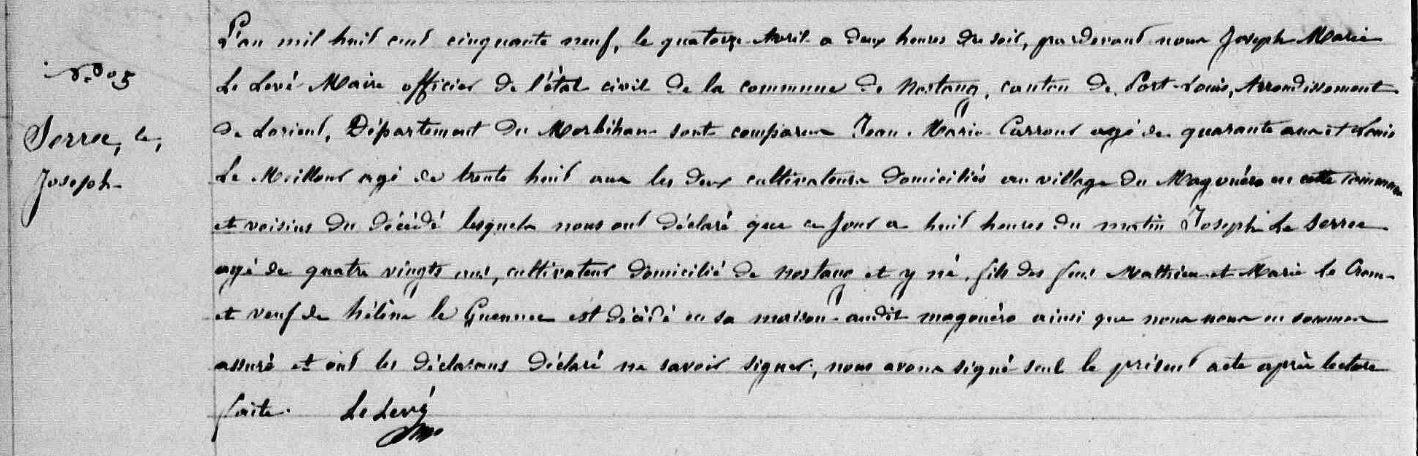 N.° 05
Serrec, le,
Joseph
L'an mil huit cent cinquante neuf, le quatorze Avril a deux heures du soir, pardevant nous Joseph Marie
Le Levé Maire officier de l'état civil de la commune de Nostang, canton de Port-Louis, Arrondissement
de Lorient, Département du Morbihan sont comparus Jean Marie Carrour agé de quarante ans et Louis
Le Meillour agé de trente huit ans les deux cultivateurs domiciliés au village du Magouëro en cette commune
et voisins du décédé lesquels nous ont déclaré que ce jour a huit heures du matin Joseph Le Serrec
agé de quatre vingts ans, cultivateur domicilié de Nostang et y né, fils des feus Mathieu et Marie le Crom
et veuf de hélène le Guennec est décédé en sa maison audit magouëro ainsi que nous nous en sommes
assuré et ont les déclarans déclaré ne savoir signer, nous avons signé seul le présent acte après lecture
faite. Le Levé